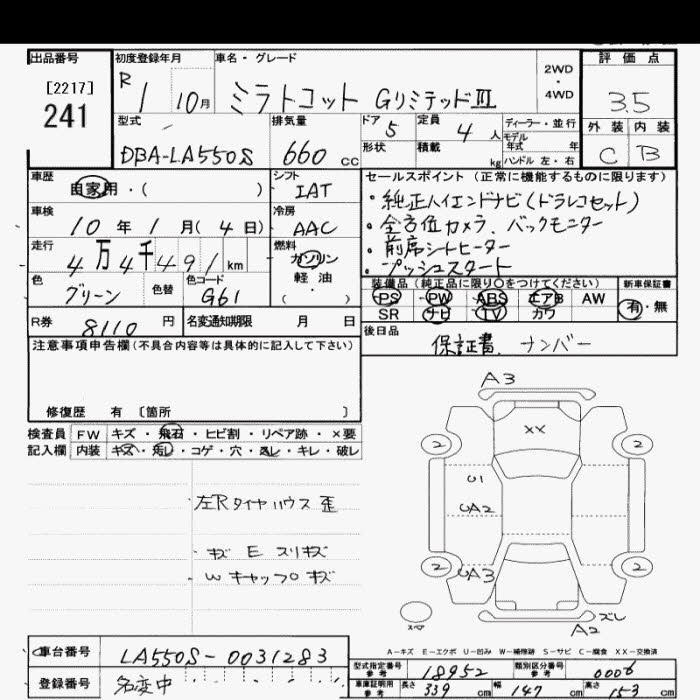 出品番号 初度登録年月 車名・グレード 2WD・4WD 評価点
[2217]
241
R 1 10月 ミラトコット GリミテッドⅢ 3.5
型式 排気量 ドア 5 定員 4人 ディーラー・並行 外装 内装
モデル年式 年
DBA-LA550S 660cc 形状 積載 kg ハンドル 左・右 C B
車歴 シフト セールスポイント(正常に機能するものに限ります)
自家用・( ) IAT ・純正ハイエンドナビ(ドラレコセット)
車検 冷房 ・全方位カメラ、バックモニター
10年1月(4日) AAC ・前席シートヒーター
走行 燃料 ・プッシュスタート
4万4千491km ガソリン
軽油
・( )
色 色替 色コード 装備品(純正品に限り○をつけてください) 新車保証書
グリーン G61 PS PW ABS エアB AW 有・無
SR ナビ TV カワ
R券 8110円 名変通知期限 月 日 後日品
保証書、ナンバー
注意事項申告欄(不具合内容等は具体的に記入して下さい)
修復歴 有 〔箇所 〕
検査員 FW キズ・飛石・ヒビ割・リペア跡・×要
記入欄 内装 キズ・汚レ・コゲ・穴・ヌレ・キレ・破レ
左Rタイヤハウス歪
・キズ E スリキズ
・W キャップキズ
A3
XX
2 2
U1
UA2
2 UA3 2
スペア
ズレ
A2
A-キズ E-エクボ U-凹み W-補修跡 S-サビ C-腐食 XX-交換済
車台番号 LA550S-0031283
型式指定番号 参考 18952 類別区分番号 参考 0006
登録番号 名変中
車庫証明用 参考 長さ 339cm 幅 147cm 高さ 153cm